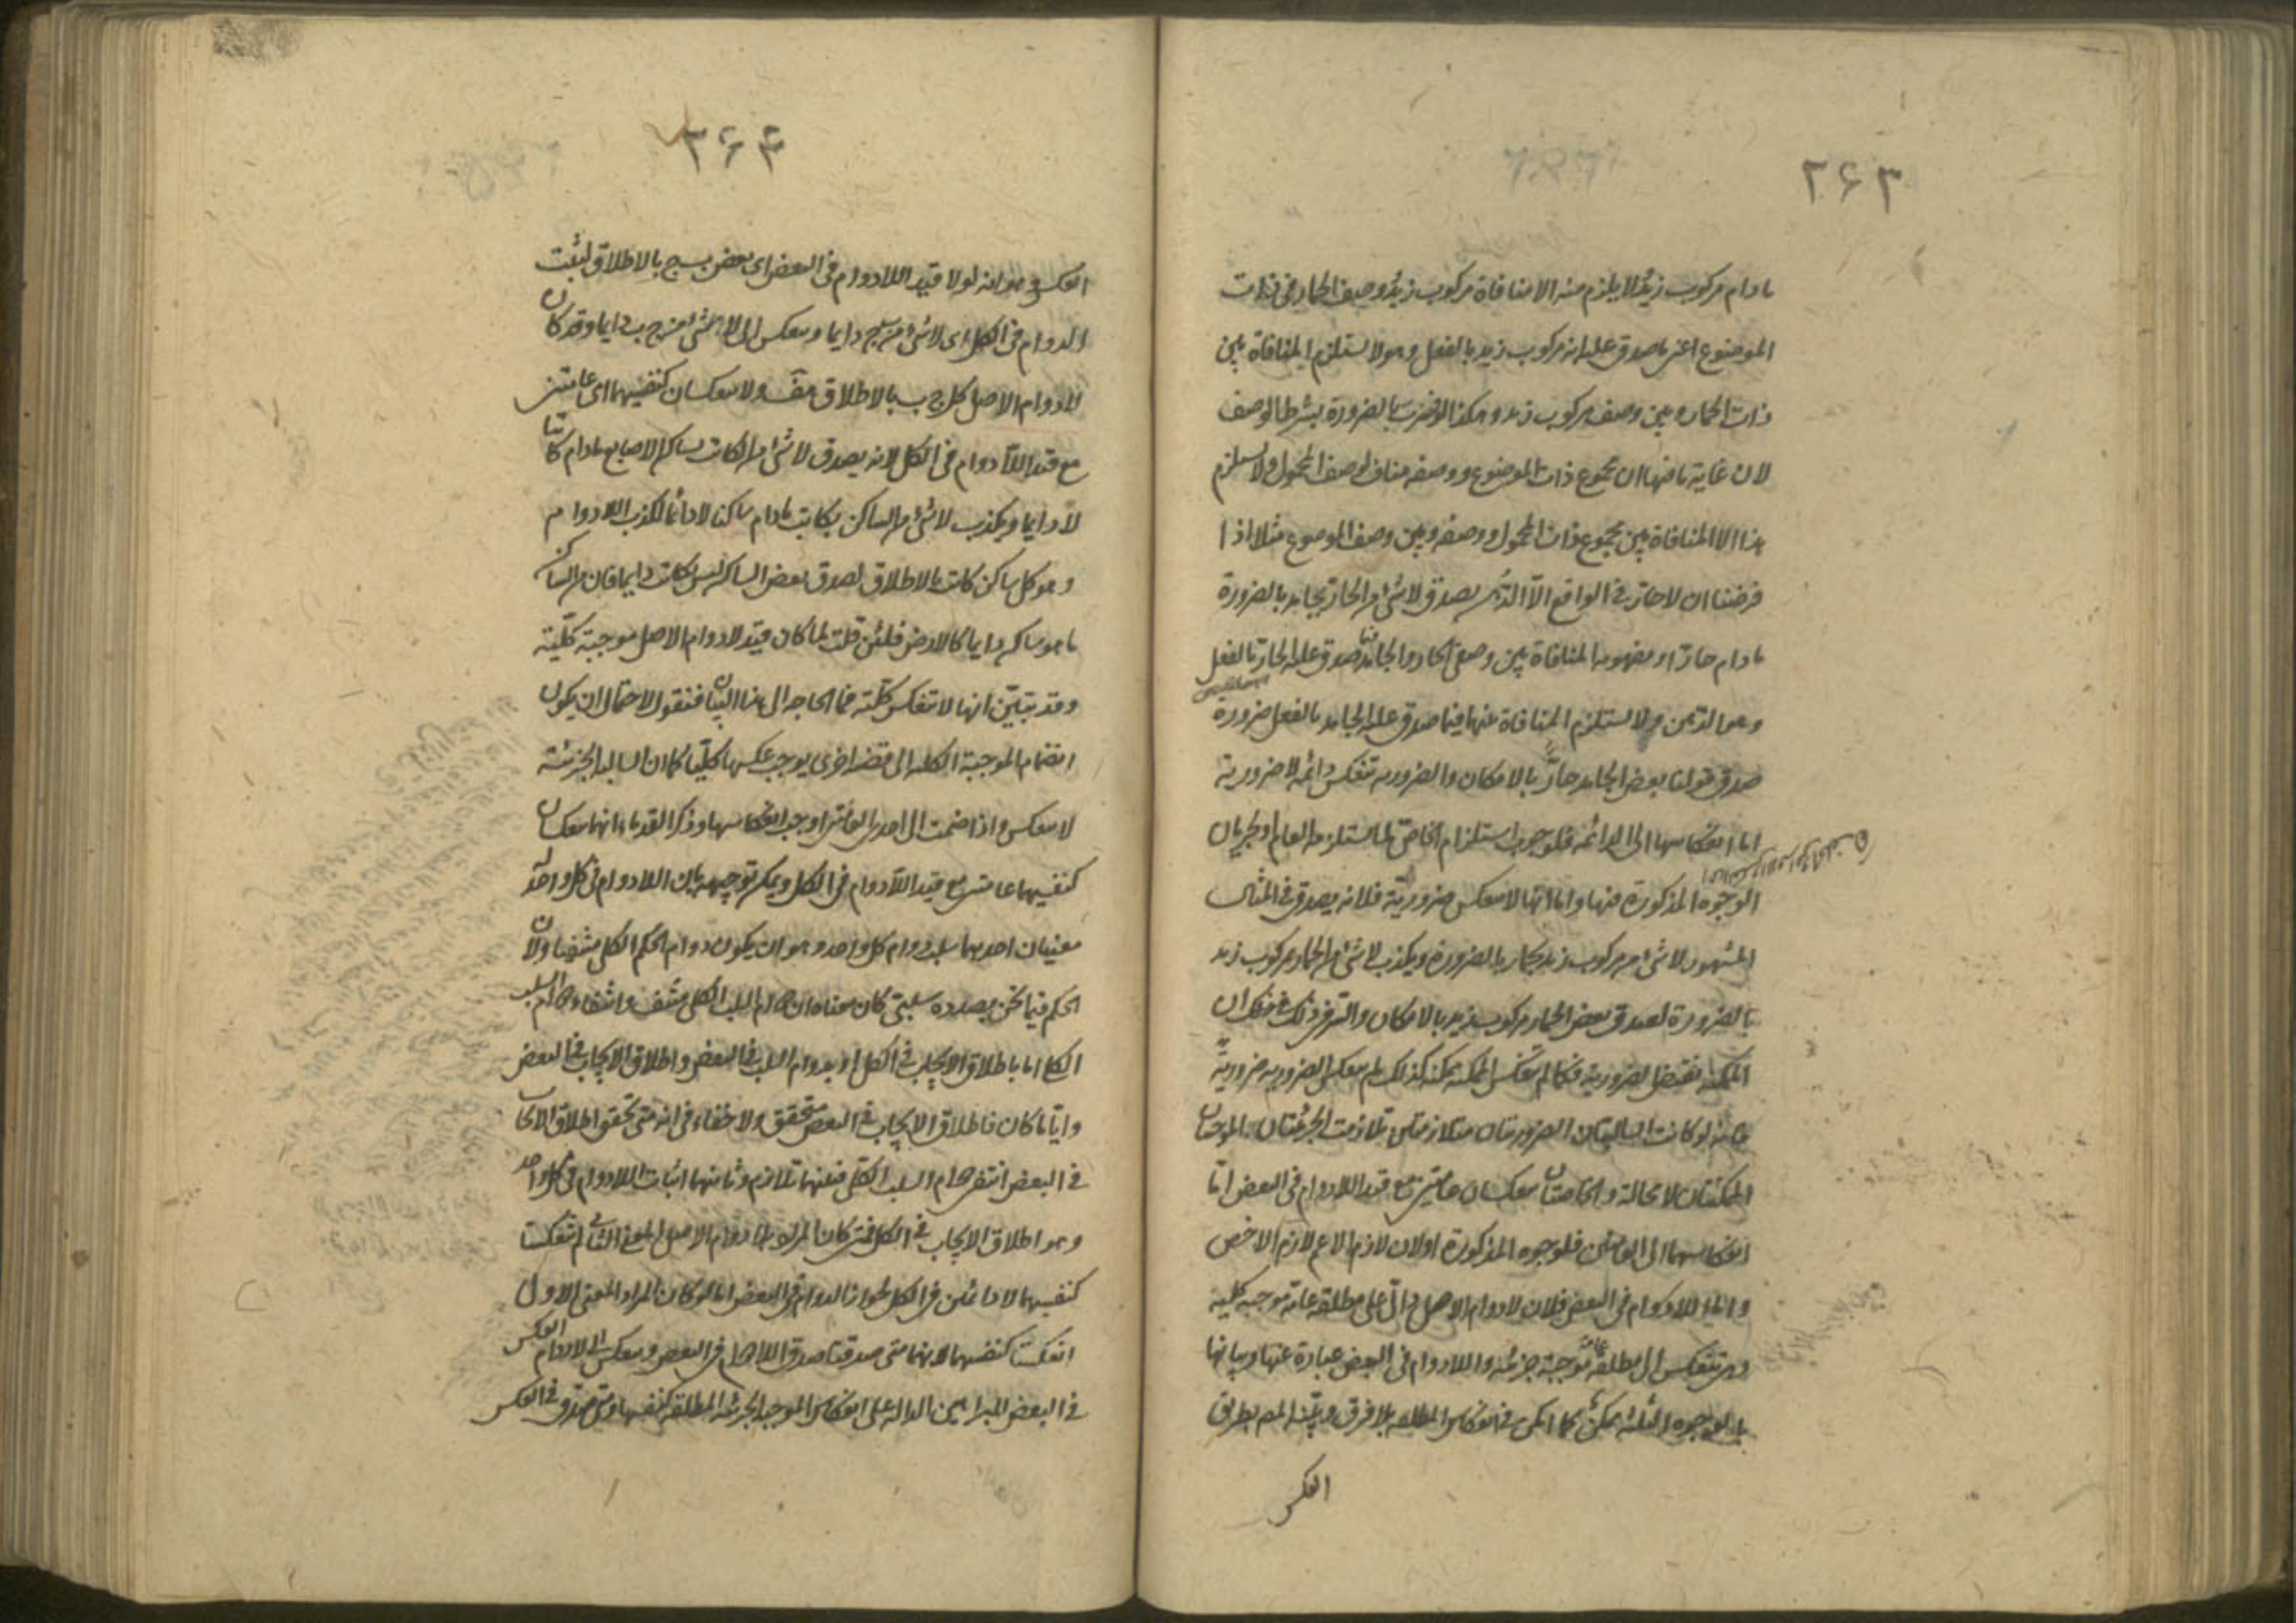 ٢٦٣
مادام مركوب زيد لا يلزم منه الا منافاة مركوب زيد وصف الحمار فى ذات
الموضوع اعنى ما صدق عليه انه مركوب زيد بالفعل وهو لا يستلزم المنافاة بين
ذات الحمار وبين وصف مركوب زيد وهكذا بالضرورة بشرط الوصف
لان غاية ما فيها ان مجموع ذات الموضوع ووصفه مناف لوصف المحمول ولا يستلزم
هذا الا المنافاة بين مجموع ذات المحمول ووصفه وبين وصف الموضوع مثلا اذا
فرضنا ان لا حار فى الواقع الا الدهن يصدق لا شئ من الحار بجامد بالضرورة
مادام حارا ومفهومه المنافاة بين وصفى الحار والجامد فيما صدق عليه الحار بالفعل
وهو الدهن ولا يستلزم المنافاة بينهما فيما صدق عليه الجامد بالفعل ضرورة
صدق قولنا بعض الجامد حار بالامكان والضرورية تنعكس دائمة لا ضرورية
اما انعكاسها الى الدائمة فلوجوب استلزام الخاص لما يستلزمه العام او لجريان
الوجوه المذكورة فيها واما انها لا تنعكس ضرورية فلانه يصدق فى المثال
المشهور لا شئ من مركوب زيد بحمار بالضرورة ويكذب لا شئ من الحمار مركوب زيد
بالضرورة لصدق بعض الحمار مركوب زيد بالامكان والسر فى ذلك ان
الممكنة نقيض الضرورية فكما لم تنعكس الممكنة ممكنة كذلك لم تنعكس الضرورية ضرورية
فانه لو كانت السالبتان الضروريتان متلازمتين تلازمت الجزئيتان الموجبتان
الممكنتان لا محالة والخاصتان تنعكسان عامتين مع قيد اللادوام فى البعض اما
انعكاسهما الى العامتين فلوجوه المذكورة او لان لازم الاعم لازم الاخص
واما اللادوام فى البعض فلان لادوام الاصل دال على مطلقة عامة موجبة كلية
وهى تنعكس الى مطلقة عامة موجبة جزئية واللادوام فى البعض عبارة عنها وبيانها
بالوجوه الثلثة ممكن كما امكن فى انعكاس المطلقة بلا فرق وبينه المص بطريق
العكس
٢٦٤
العكس وهو انه لولا قيد اللادوام فى البعض اى بعض ب ج بالاطلاق لثبت
الدوام فى الكل اى لا شئ من ب ج دايما وينعكس الى لا شئ من ج ب دايما وقد كان
لادوام الاصل كل ج ب بالاطلاق هف ولا تنعكسان كنفسيهما اى عامتين
مع قيد اللادوام فى الكل لانه يصدق لا شئ من الكاتب بساكن الاصابع مادام كاتبا
لا دايما ويكذب لا شئ من الساكن بكاتب مادام ساكنا لا دائما لكذب اللادوام
وهو كل ساكن كاتب بالاطلاق لصدق بعض الساكن ليس بكاتب دايما فان من الساكن
ما هو ساكن دايما كالارض فلئن قلت لما كان قيد لادوام الاصل موجبة كلية
وقد تبين انها لا تنعكس كلية فما الحاجة الى هذا البيان فنقول لاحتمال ان يكون
انضمام الموجبة الكلية الى قضية اخرى يوجب عكسها كليا كما ان السالبة الجزئية
لا تنعكس واذا ضمت الى احدى العامتين اوجب انعكاسها وذكر القدماء انهما تنعكسان
كنفسيهما عامتين مع قيد اللادوام فى الكل ويمكن توجيهه بان اللادوام فى كل واحد له
معنيان احدهما سلب دوام كل واحد وهو ان يكون دوام الحكم الكلى منتفيا ولان
الحكم فيما نحن بصدده سلبى كان معناه ان دوام السلب الكلى منتف وانتفاء دوام السلب
الكلى اما باطلاق الايجاب فى الكل او بدوام السلب فى البعض واطلاق الايجاب فى البعض
وايا ما كان فاطلاق الايجاب فى البعض متحقق ولا خفاء فى انه متى تحقق اطلاق الايجاب
فى البعض انتفى دوام السلب الكلى فبينهما تلازم وثانيهما اثبات اللادوام فى كل واحد
وهو اطلاق الايجاب فى الكل فمتى كان المراد بلادوام الاصل المعنى الثانى لم تنعكسا
كنفسيهما لا دائمتين فى الكل لجواز الدوام فى البعض اما لو كان المراد المعنى الاول
انعكستا كنفسيهما لانهما متى صدقتا صدق اللادوام فى البعض وينعكس الى اللادوام العكس
فى البعض للبراهين الدالة على انعكاس الموجبة الجزئية المطلقة كنفسها ومتى صدق فى العكس